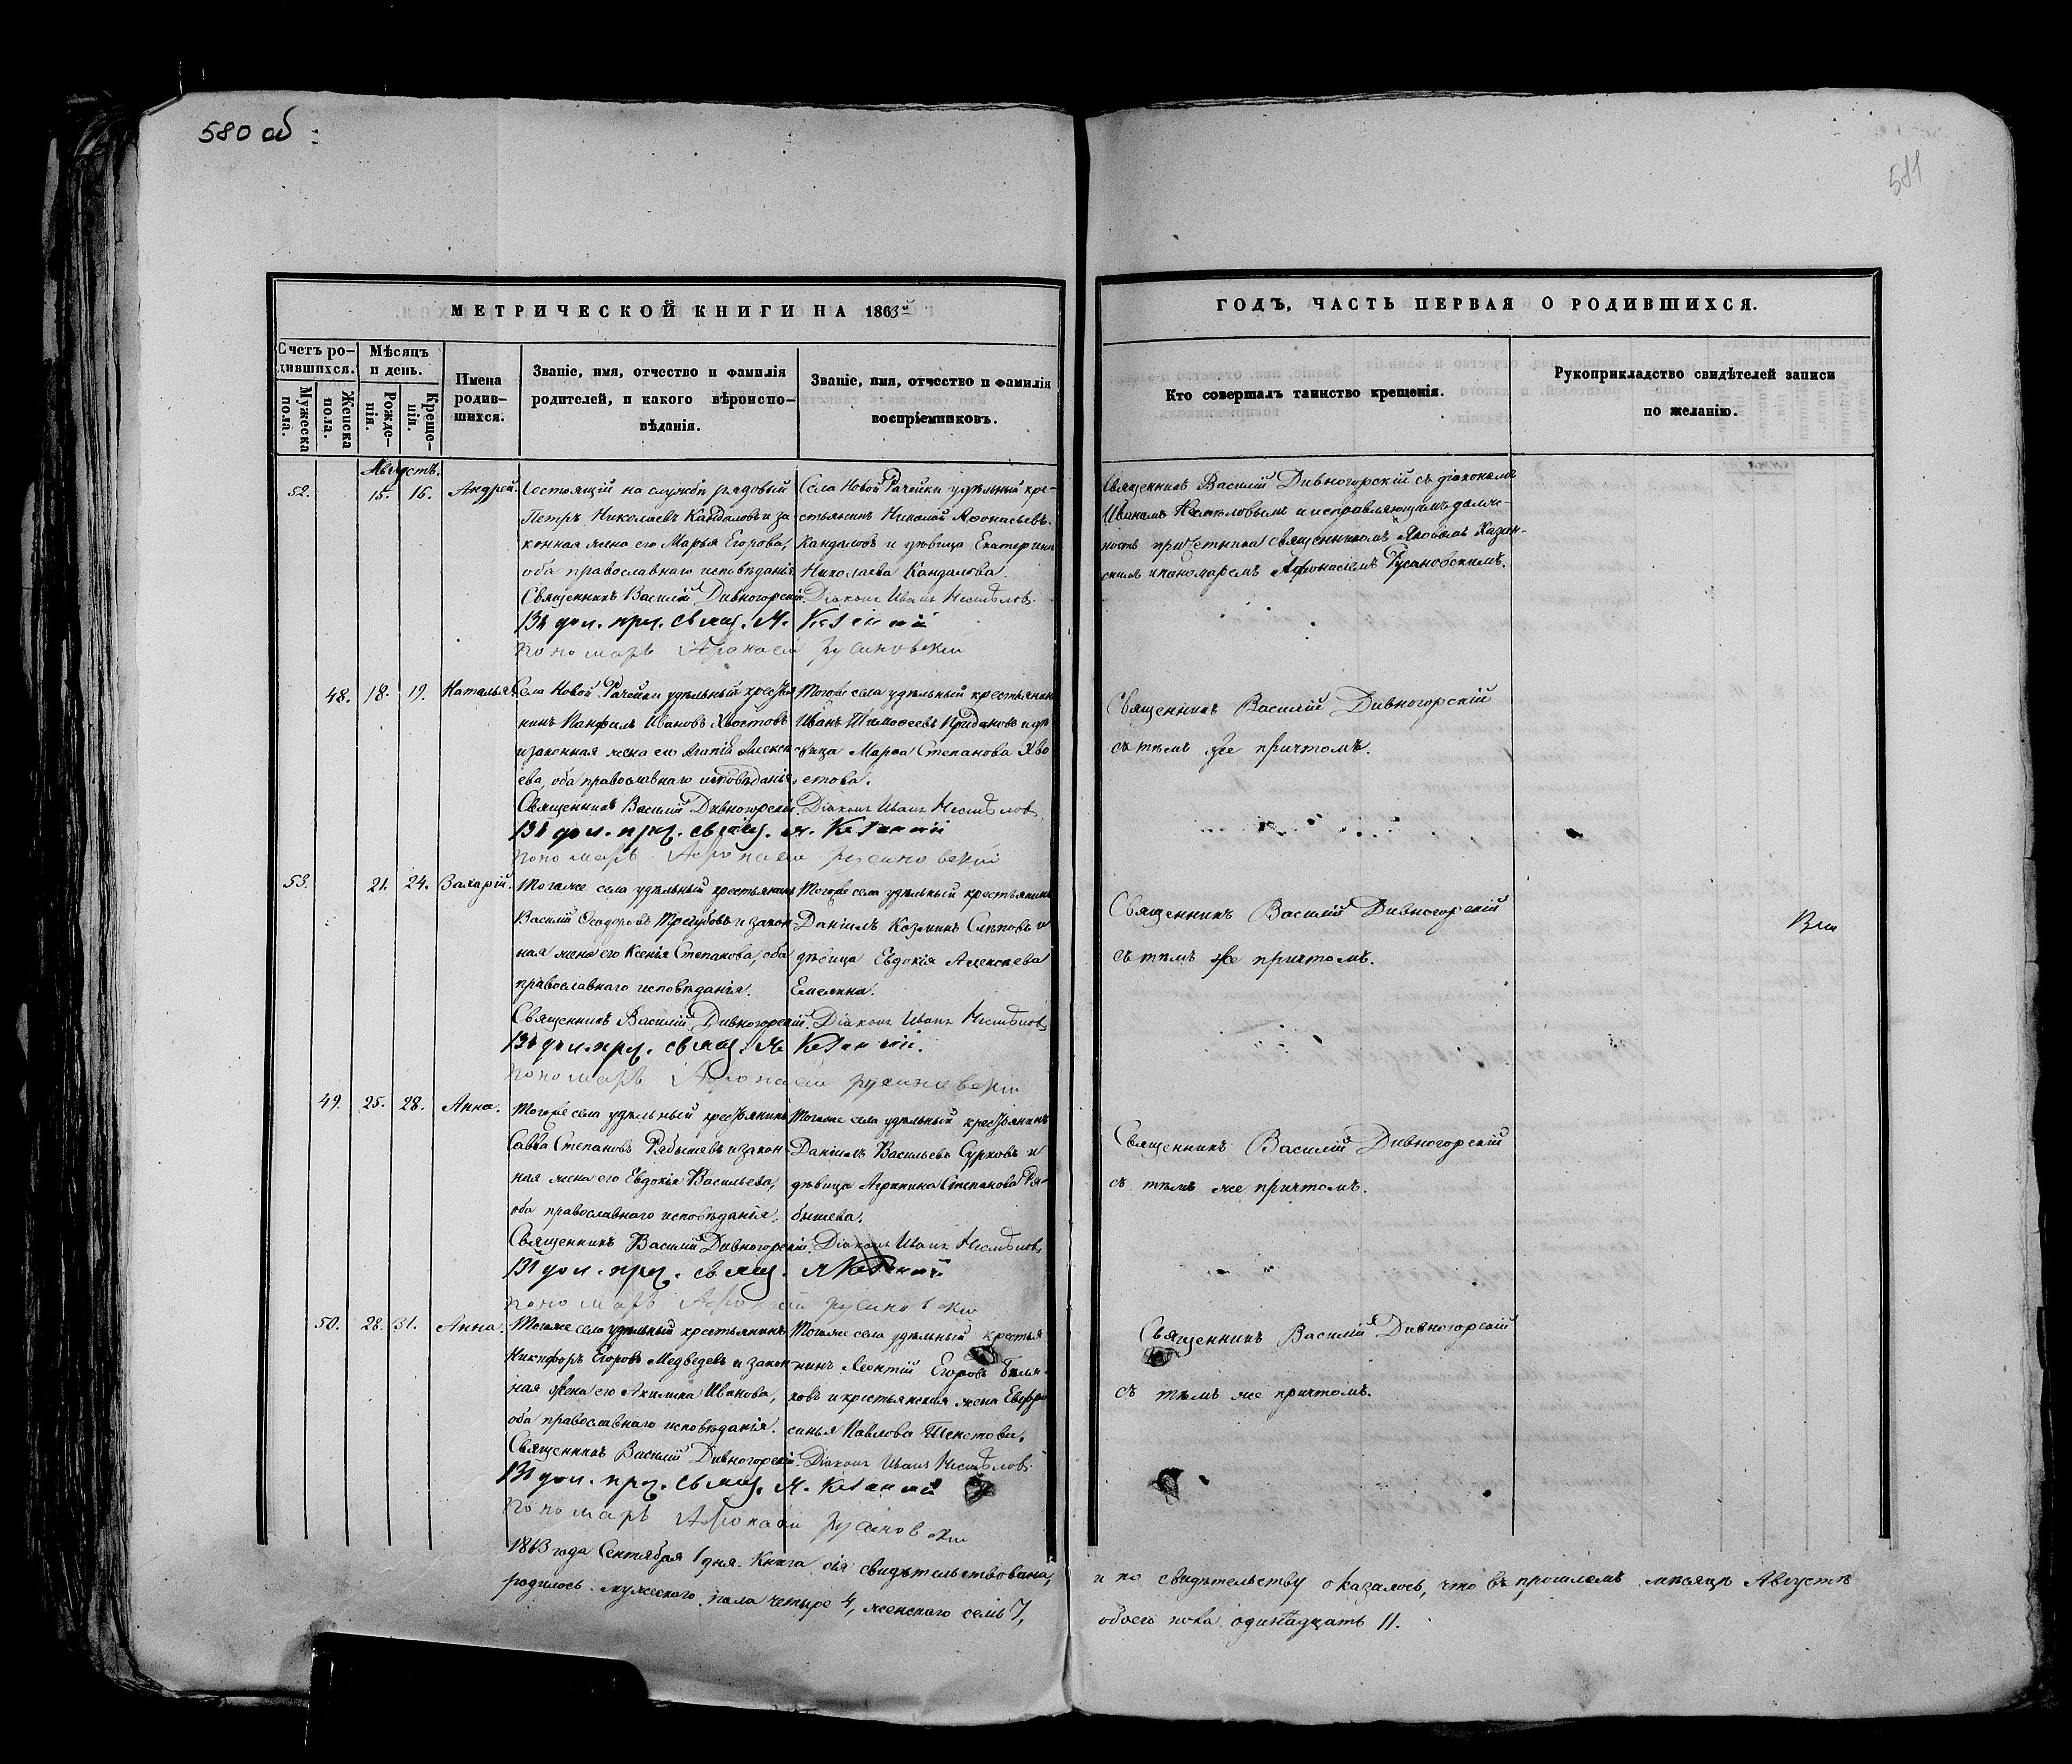 580 об
581
МЕТРИЧЕСКОЙ КНИГИ НА 1863й
Счетъ ро-
дившихся.
Мужеска
пола.
Женска
пола.
Мѣсяцъ
и день.
Рожде-
нія.
Креще-
нія.
Имена
родив-
шихся.
Званіе, имя, отчество и фамилія
родителей, и какого вѣроиспо-
вѣданія.
Званіе, имя, отчество и фамилія
воспріемниковъ.
Августъ.
52.
15. 16.
Андрей.
Состоящій на службѣ рядовый
Петръ Николаевъ Кандаловъ и за-
конная жена его Марья Егорова,
оба православнаго исповѣданія
Села Новой Рачейки удѣльный кре-
стьянинъ Николай Афонасьевъ
Кандаловъ и дѣвица Екатерина
Николаева Кандалова.
Священникъ Василій Дивногорскій. Діаконъ Иванъ
дол. прч. свящ. Я. Казанскій
пономарь Афонасій Русановскій
48.
18. 19.
Наталья.
Села Новой Рачейки удѣльный крестья-
нинъ Панфилъ Ивановъ Хвостовъ
и законная жена его Алексѣ-
ева, оба православнаго исповѣданія.
Тогоже села удѣльный крестьянинъ
Иванъ Тимофеевъ и дѣ-
вица Марфа Степанова Хво-
стова.
Священникъ Василій Дивногорскій. Діаконъ Иванъ
дол. прч. свящ. Я. Казанскій
пономарь Афонасій Русановскій
53.
21. 24.
Захарій.
Тогоже села удѣльный крестьянинъ
Василій Ѳеодоровъ и закон-
ная жена его Ксенія Степанова, оба
православнаго исповѣданія.
Тогоже села удѣльный крестьянинъ
Даніилъ Козминъ Слѣповъ и
дѣвица Евдокія Алексѣева
Емелина.
Священникъ Василій Дивногорскій. Діаконъ Иванъ
дол. прч. свящ. Я. Казанскій.
пономарь Афонасій Русановскій
49.
25. 28.
Анна.
Тогоже села удѣльный крестьянинъ
Савва Степановъ Рябышевъ и закон-
ная жена его Евдокія Васильева,
оба православнаго исповѣданія.
Тогоже села удѣльный крестьянинъ
Даніилъ Васильевъ Сурковъ и
дѣвица Агрипина Степанова Ря-
бышева.
Священникъ Василій Дивногорскій. Діаконъ Иванъ
дол. прч. свящ. Я Казанскій
пономарь Афонасій Русановскій
50.
28. 31.
Анна.
Тогоже села удѣльный крестьянинъ
Никифоръ Егоровъ Медведевъ и закон-
ная жена его Акилина Иванова,
оба православнаго исповѣданія.
Тогоже села удѣльный крестья-
нинъ Леонтій Егоровъ
ковъ и крестьянская жена Евфро-
синья Павлова
Священникъ Василій Дивногорскій. Діаконъ Иванъ
дол. прч. свящ. Я. Казанскій
пономарь Афонасій Русановскій
1863 года Сентября 1 дня. Книга сія свидѣтельствована,
родилось мужескаго пола четыре 4, женскаго семь 7,
ГОДЪ, ЧАСТЬ ПЕРВАЯ О РОДИВШИХСЯ.
Кто совершалъ таинство крещенія.
Рукоприкладство свидѣтелей записи
по желанію.
Священникъ Василій Дивногорскій съ діакономъ
Иваномъ и исправляющимъ долж-
ность причетника священникомъ Яковомъ Казан-
скимъ и пономаремъ Афонасіемъ Русановскимъ.
Священникъ Василій Дивногорскій
съ тѣмъ же причтомъ.
Священникъ Василій Дивногорскій
съ тѣмъ же причтомъ.
Священникъ Василій Дивногорскій
съ тѣмъ же причтомъ.
Священникъ Василій Дивногорскій
съ тѣмъ же причтомъ.
и по свидѣтельству оказалось, что въ прошломъ мѣсяцѣ Августѣ
обоего пола одиннадцать 11.